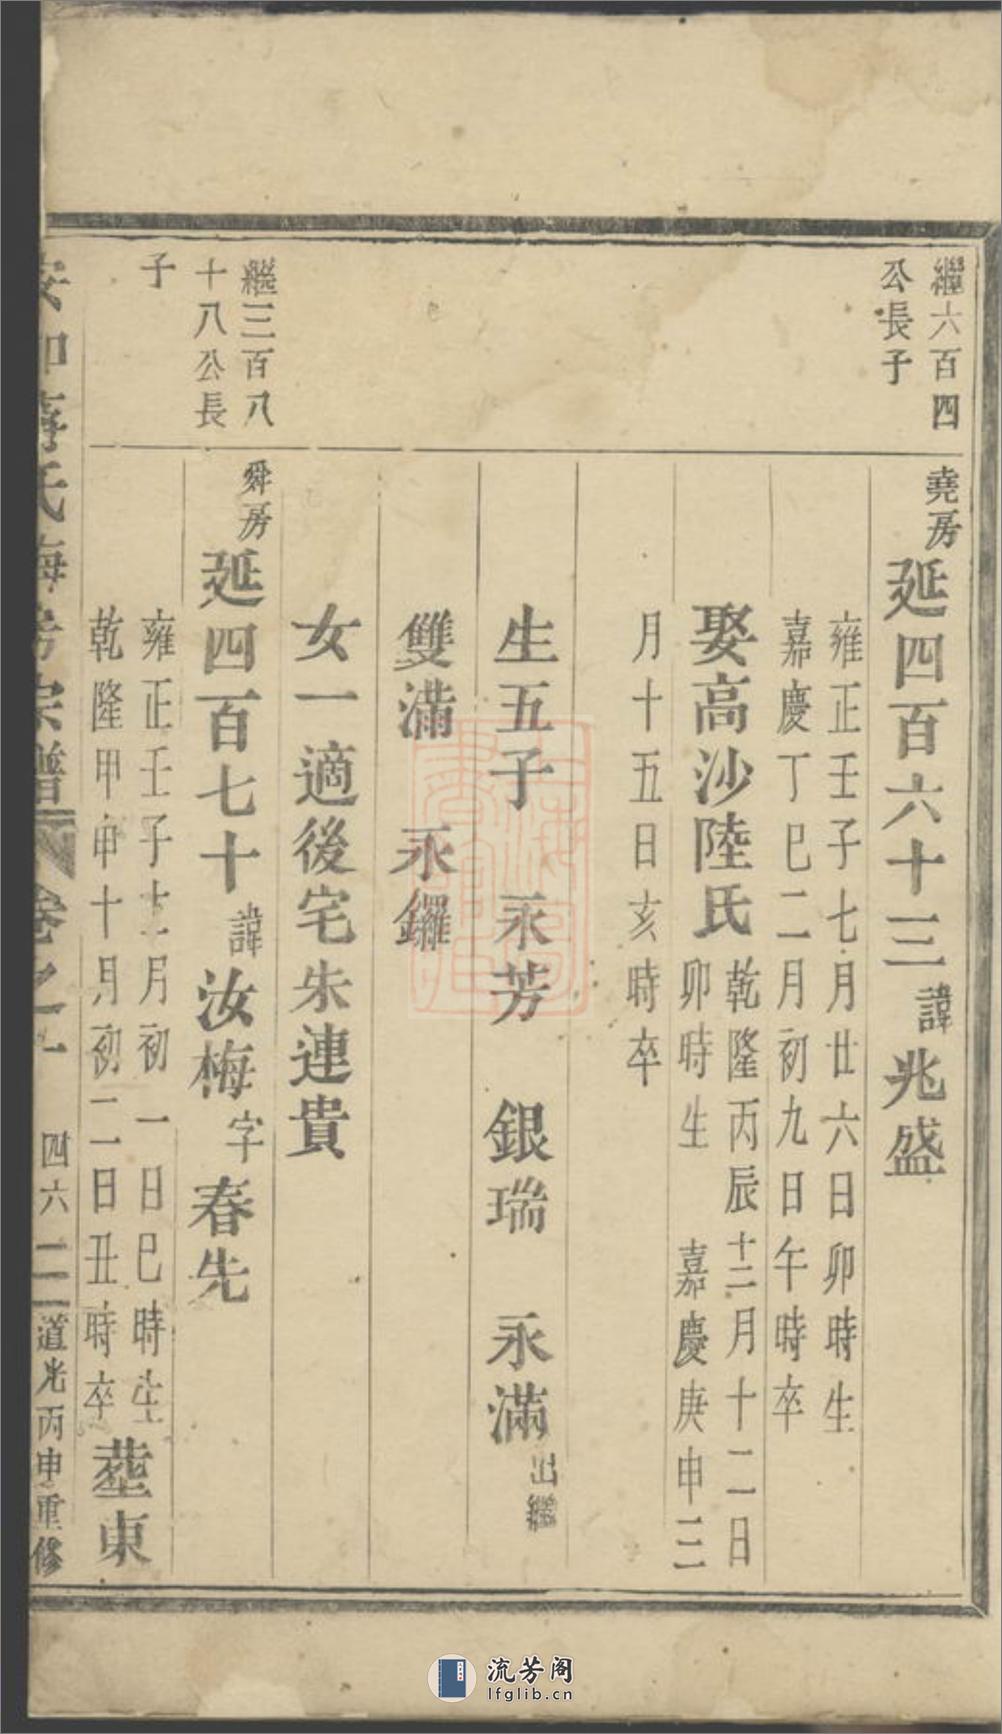 繼六百四
公長子
堯房
延四百六十三諱兆盛
雍正壬子七月廿六日卯時生
嘉慶丁巳二月初九日午時卒
娶高沙陸氏
乾隆丙辰十二月十二日
卯時生 嘉慶庚申三
月十五日亥時卒
生五子 永芳 銀瑞 永滿出繼
雙滿 永鑼
女一適後宅朱連貴
繼三百八
十八公長
子
舜房
延四百七十諱汝梅字春先
雍正壬子十二月初一日巳時生
乾隆甲申十月初二日丑時卒
塟東
氏梅房宗譜 卷之一 四六二 道光丙申重修
流芳阁
lfglib.cn